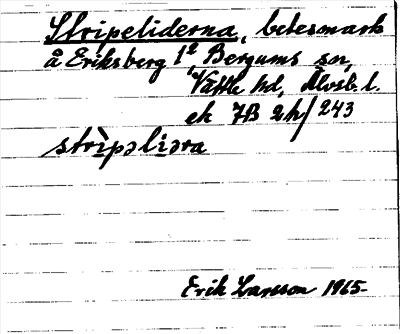 Stripeliderna, betesmark
å Eriksberg 1², Bergums sn,
Vättle hd, Älvsb. l.
ek 7B 2h/243
strìpəliəra
Erik Larsson 1965